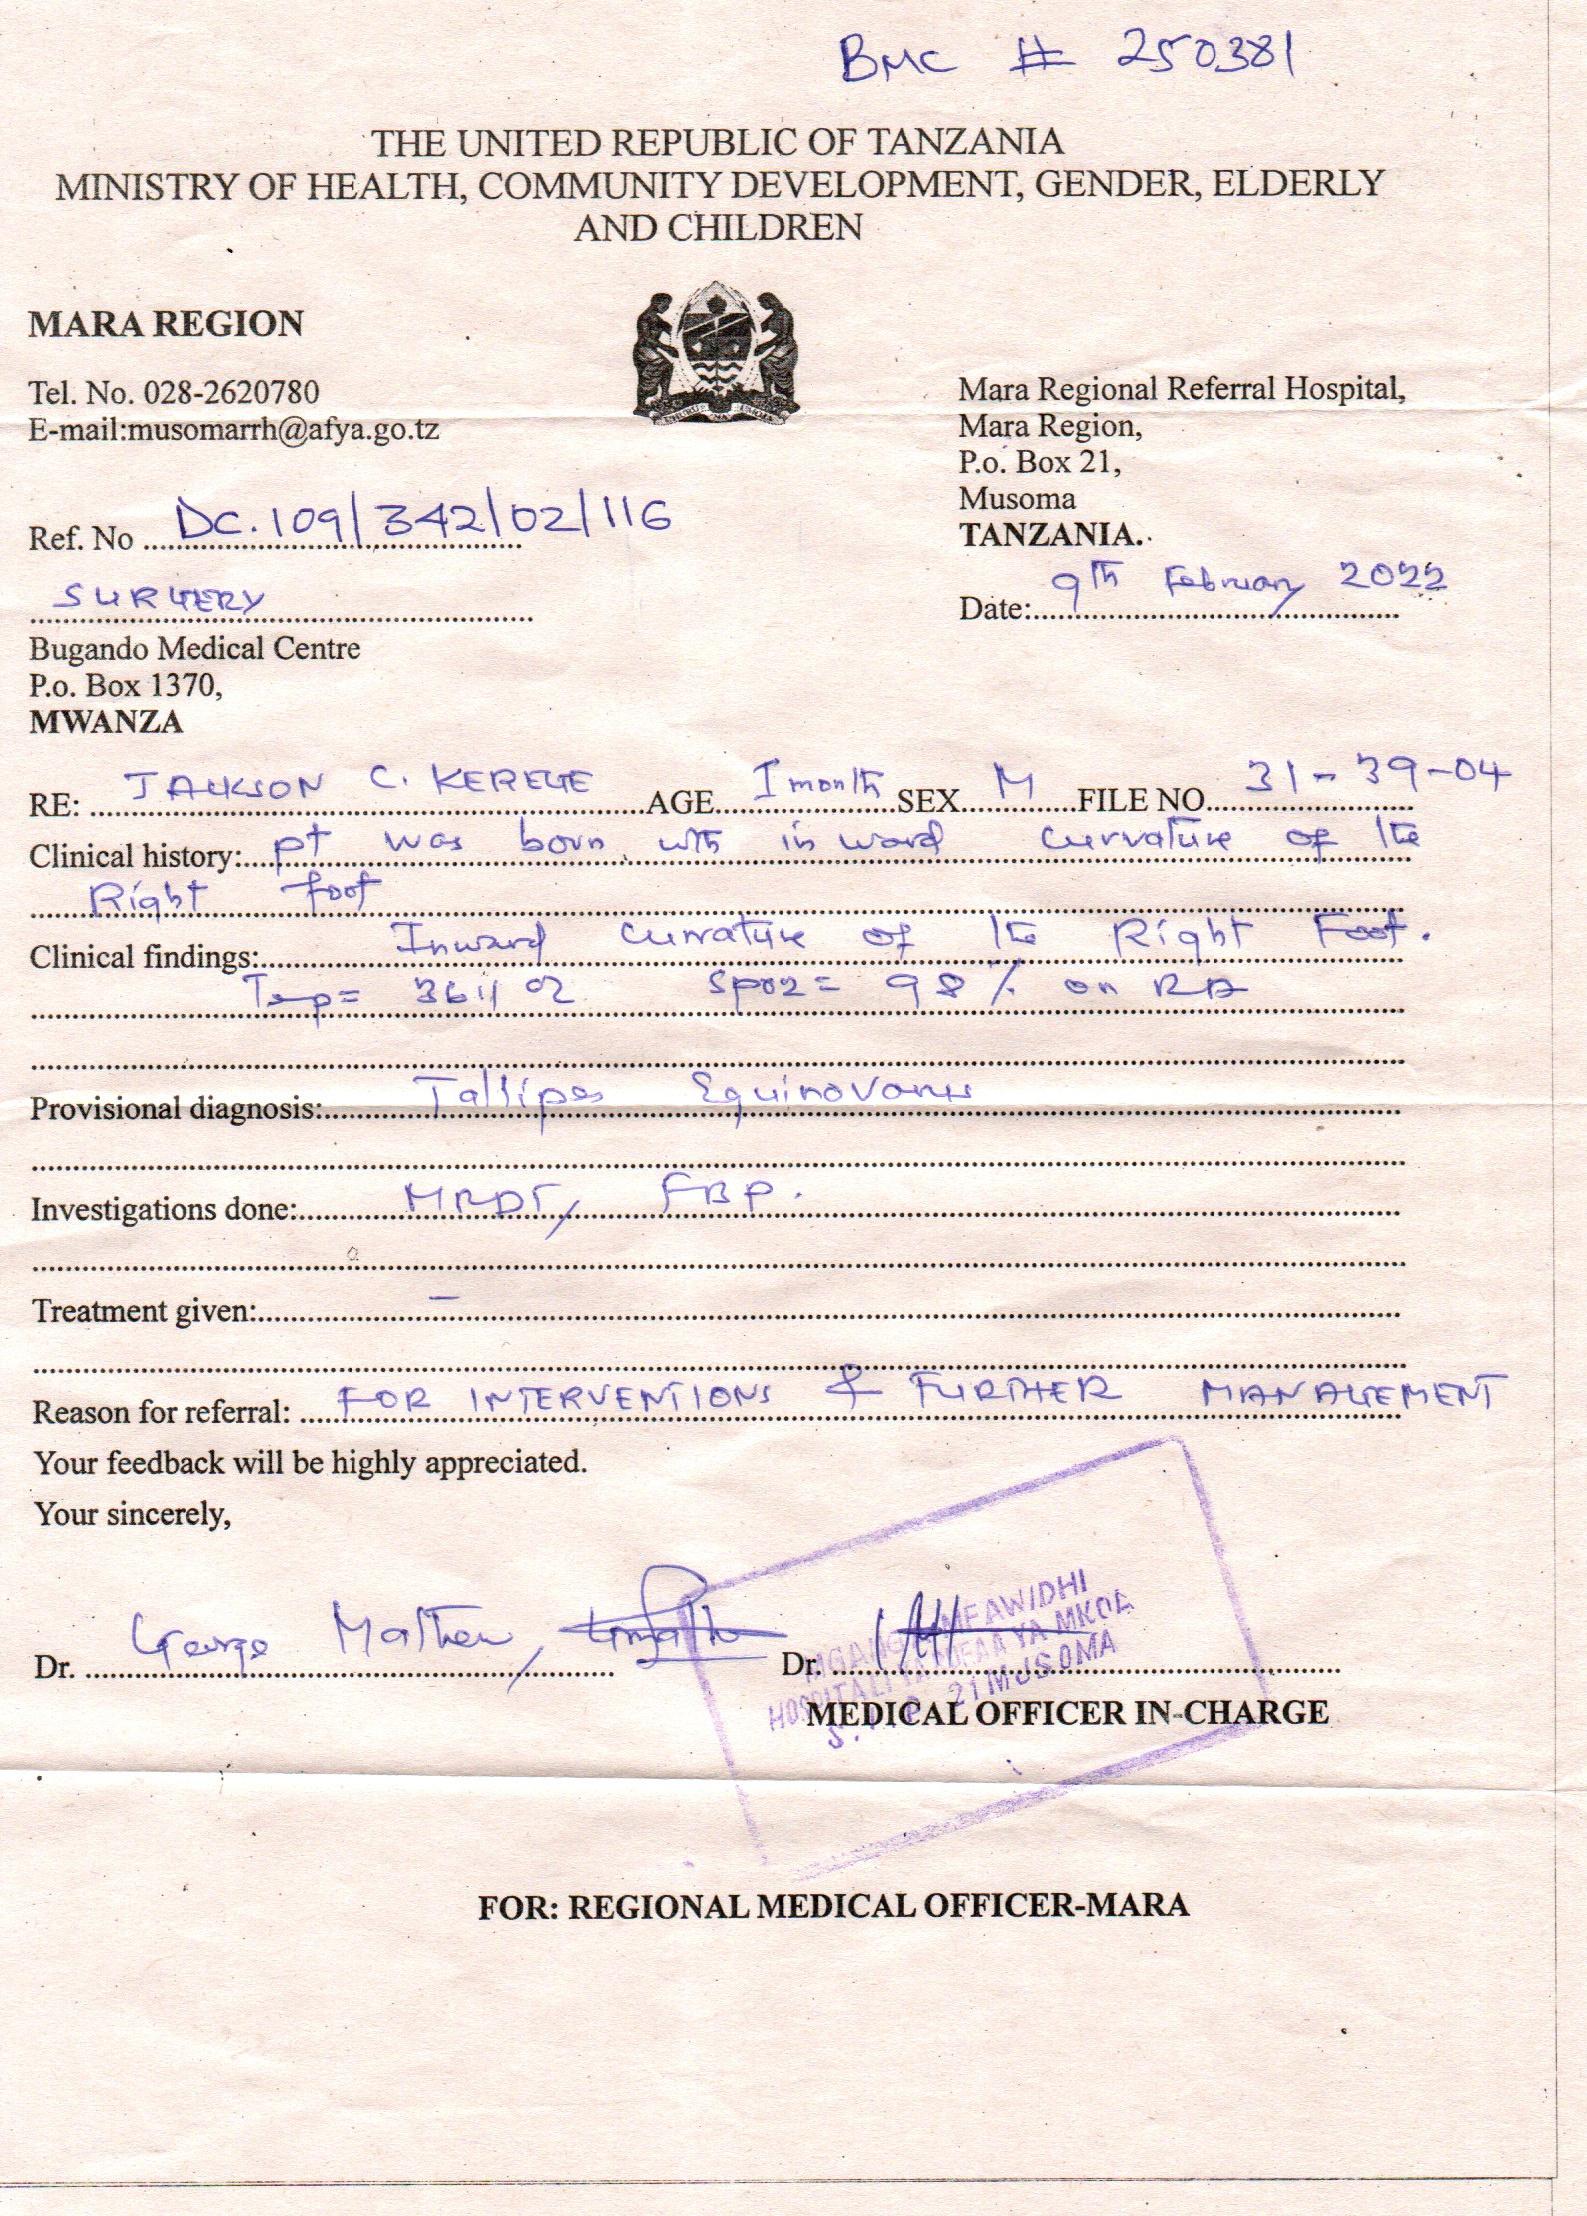 BMC # 250381
THE UNITED REPUBLIC OF TANZANIA
MINISTRY OF HEALTH, COMMUNITY DEVELOPMENT, GENDER, ELDERLY
AND CHILDREN
MARA REGION
Tel. No. 028-2620780
E-mail:musomarrh@afya.go.tz
Mara Regional Referral Hospital,
Mara Region,
P.o. Box 21,
Musoma
TANZANIA.
Ref. No DC.109/342/02/116
Date: 9th February 2022
SURGERY
Bugando Medical Centre
P.o. Box 1370,
MWANZA
RE: JACKSON C. KEREGE AGE 1 month SEX M FILE NO. 31-39-04
Clinical history: pt was born with in ward curvature of the
Right foot
Clinical findings: Inward curvature of the Right Foot.
Temp= SpO2= 98% on RA
Provisional diagnosis: Tallipes Equinovarus
Investigations done: MRDT, FBP.
Treatment given: –
Reason for referral: FOR INTERVENTIONS & FURTHER MANAGEMENT
Your feedback will be highly appreciated.
Your sincerely,
Dr. George Mathew,
Dr.
MFAWIDHI
HOSPITALI YA RUFAA YA MKOA
S.L.P 21 MUSOMA
MEDICAL OFFICER IN-CHARGE
FOR: REGIONAL MEDICAL OFFICER-MARA